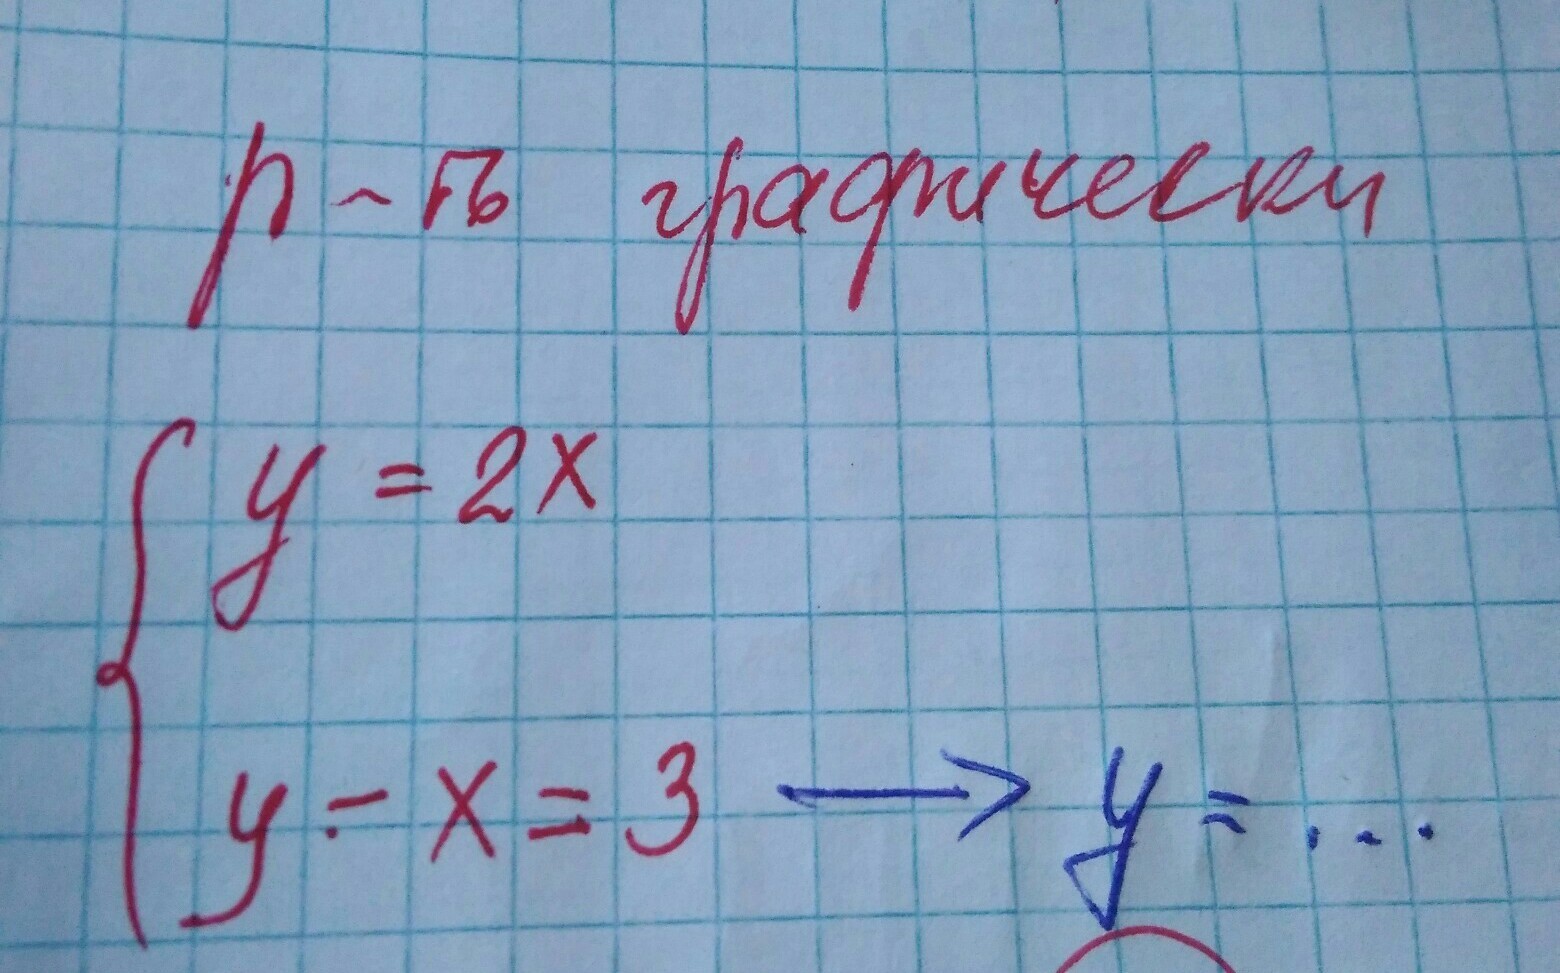 р-ть графически
y = 2x
y - x = 3 → y = ...